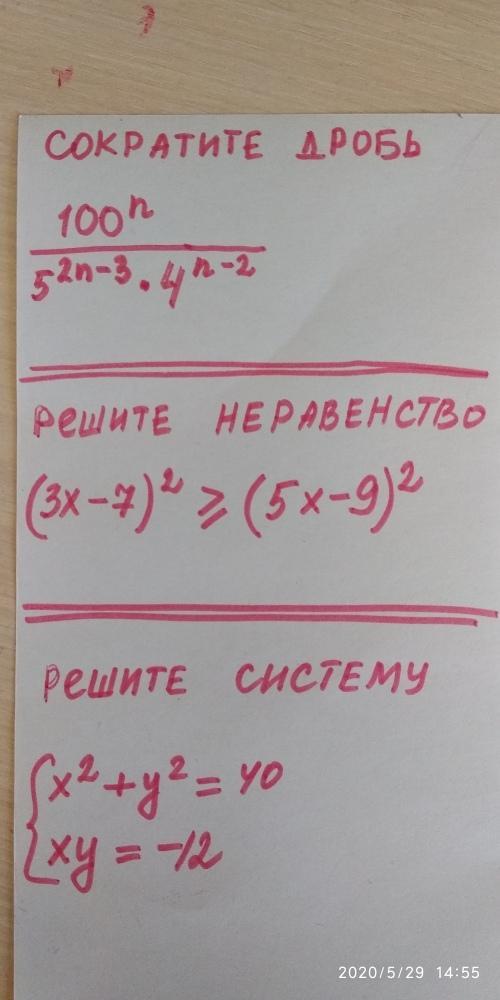 СОКРАТИТЕ ДРОБЬ
100ⁿ
5²ⁿ⁻³ · 4ⁿ⁻²
РЕШИТЕ НЕРАВЕНСТВО
(3x-7)² ≥ (5x-9)²
РЕШИТЕ СИСТЕМУ
x² + y² = 40
xy = -12
2020/5/29 14:55